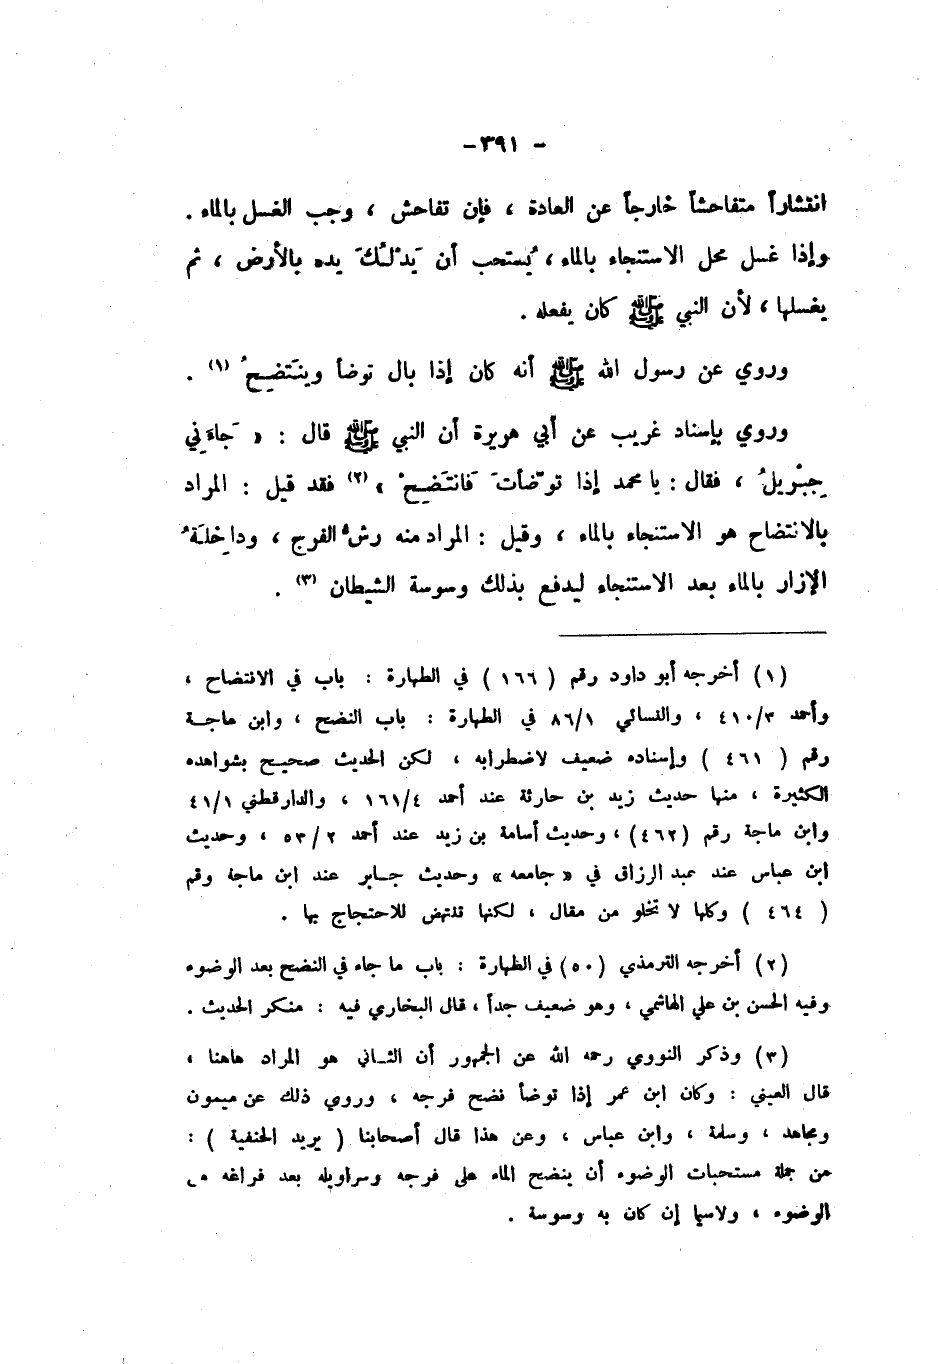 - ٣٩١ -
انتشاراً متفاحشاً خارجاً عن العادة ، فإن تفاحش ، وجب الغسل بالماء .
وإذا غسل محل الاستنجاء بالماء ، يُستحب أن يَدْلُكَ يده بالأرض ، ثم
يغسلها ، لأن النبي ﷺ كان يفعله .
وروي عن رسول الله ﷺ أنه كان إذا بال توضأ وينَتَضِحُ (١) .
وروي بإسناد غريب عن أبي هريرة أن النبي ﷺ قال : « جاءَني
جِبْريلُ ، فقال : يا محمد إذا توضّأتَ فَانتَضِحْ » (٢) فقد قيل : المراد
بالانتضاح هو الاستنجاء بالماء ، وقيل : المراد منه رشُّ الفرج ، وداخِلَةُ
الإزار بالماء بعد الاستنجاء ليدفع بذلك وسوسة الشيطان (٣) .
(١) أخرجه أبو داود رقم ( ١٦٦ ) في الطهارة : باب في الانتضاح ،
وأحمد ٤١٠/٣ ، والنسائي ٨٦/١ في الطهارة : باب النضح ، وابن ماجة
رقم ( ٤٦١ ) وإسناده ضعيف لاضطرابه ، لكن الحديث صحيح بشواهده
الكثيرة ، منها حديث زيد بن حارثة عند أحمد ١٦١/٤ ، والدارقطني ٤١/١
وابن ماجة رقم (٤٦٢) ، وحديث أسامة بن زيد عند أحمد ٢ / ٥٣ ، وحديث
ابن عباس عند عبد الرزاق في « جامعه » وحديث جابر عند ابن ماجة رقم
( ٤٦٤ ) وكلها لا تخلو من مقال ، لكنها تنتهض للاحتجاج بها .
(٢) أخرجه الترمذي (٥٠) في الطهارة : باب ما جاء في النضح بعد الوضوء
وفيه الحسن بن علي الهاشمي ، وهو ضعيف جداً ، قال البخاري فيه : منكر الحديث .
(٣) وذكر النووي رحمه الله عن الجمهور أن الثاني هو المراد هاهنا ،
قال العيني : وكان ابن عمر إذا توضأ نضح فرجه ، وروي ذلك عن ميمون
ومجاهد ، وسلمة ، وابن عباس ، وعن هذا قال أصحابنا ( يريد الحنفية ) :
من جملة مستحبات الوضوء أن ينضح الماء على فرجه وسراويله بعد فراغه من
الوضوء ، ولاسيما إن كان به وسوسة .